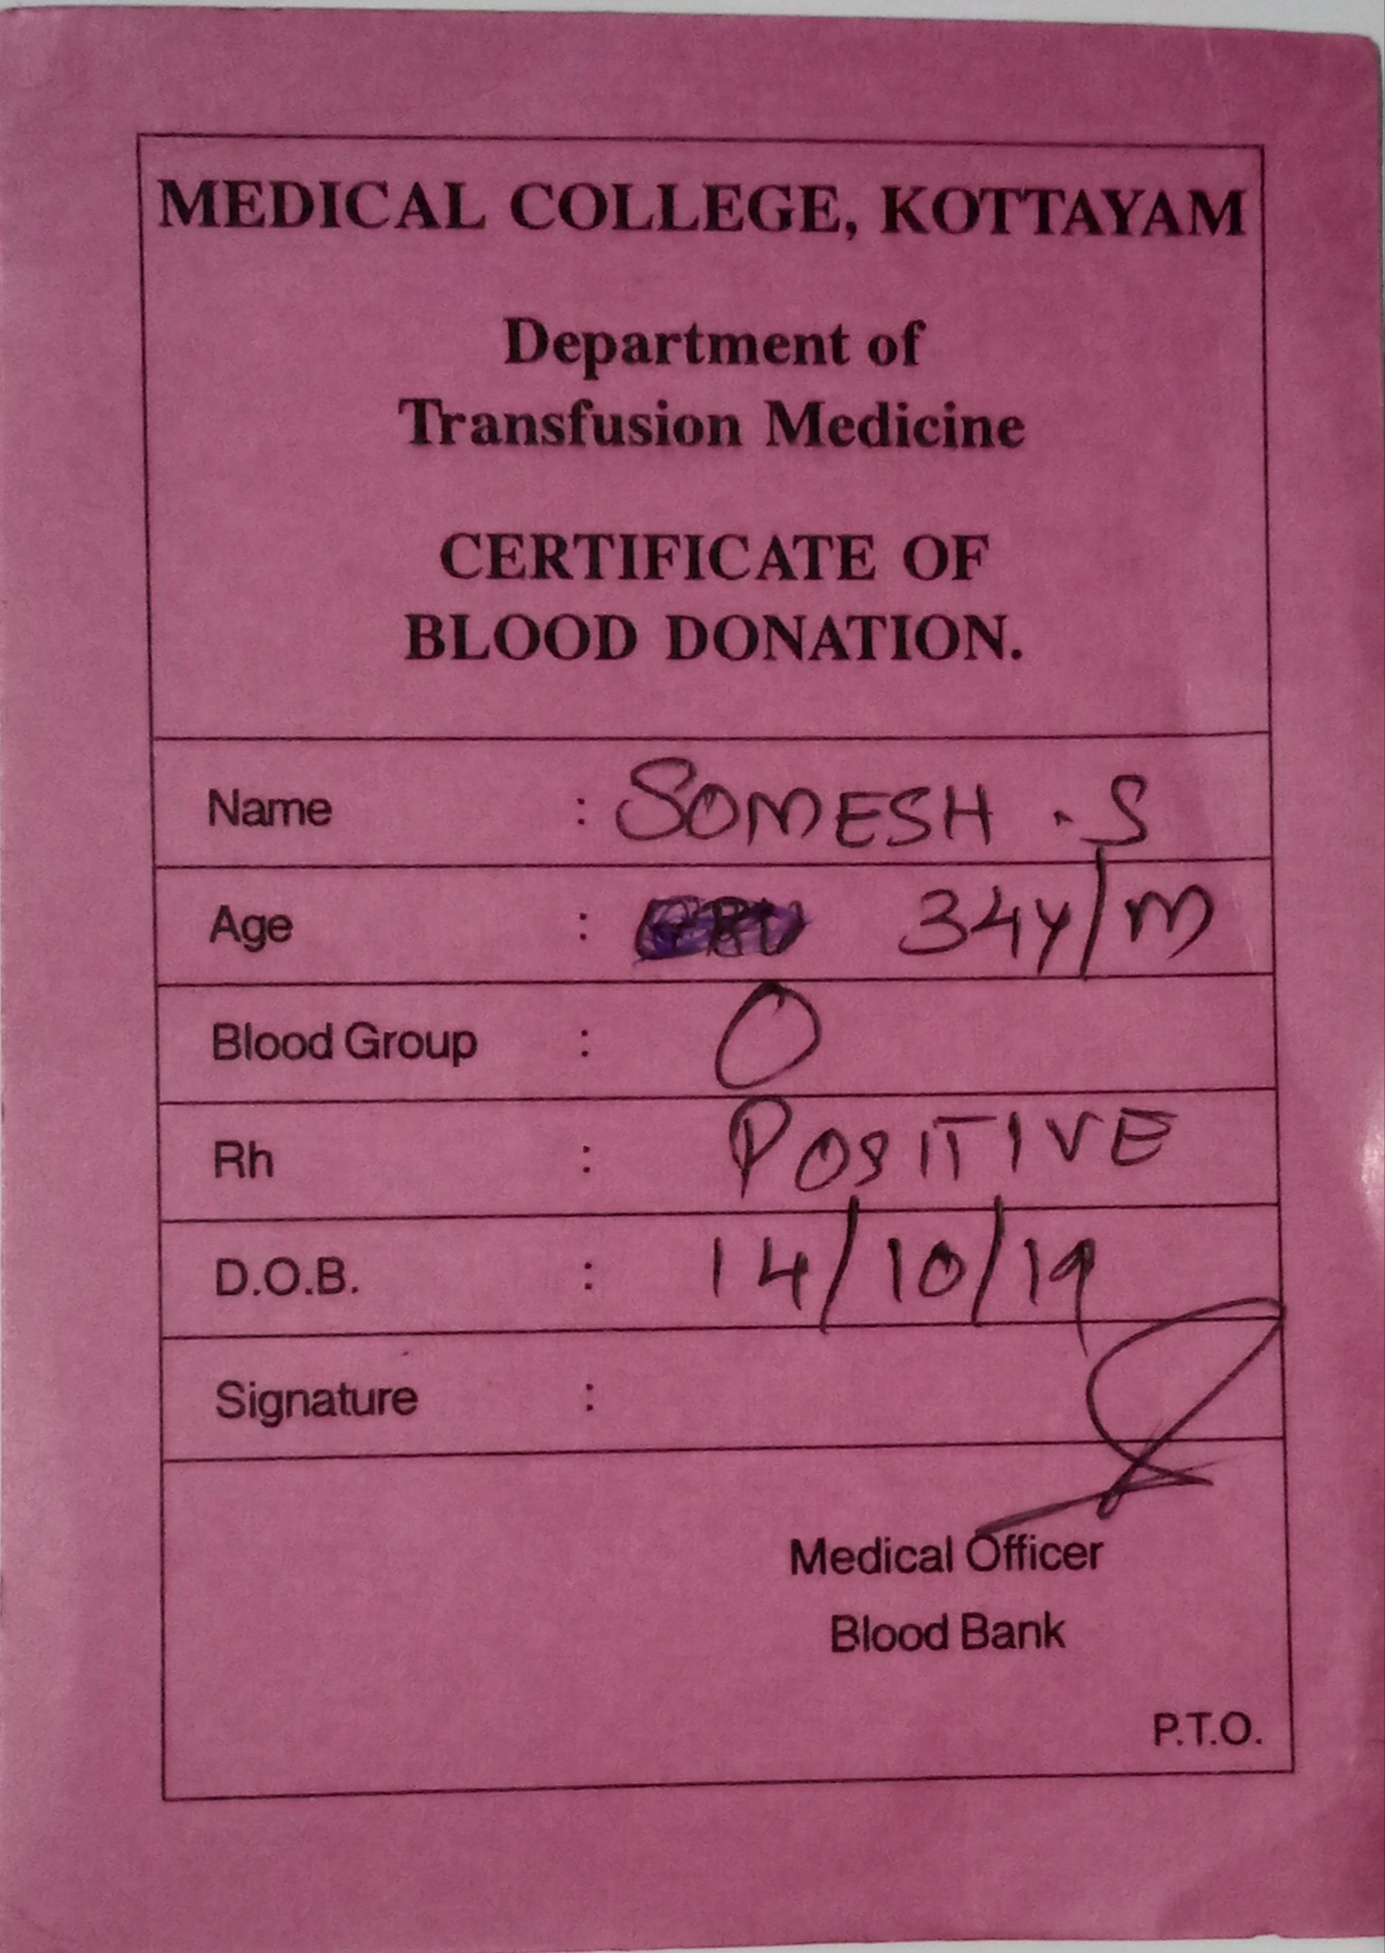 MEDICAL COLLEGE, KOTTAYAM
Department of
Transfusion Medicine
CERTIFICATE OF
BLOOD DONATION.
Name : SOMESH . S
Age : 34y/m
Blood Group : O
Rh : POSITIVE
D.O.B. : 14/10/19
Signature :
Medical Officer
Blood Bank
P.T.O.